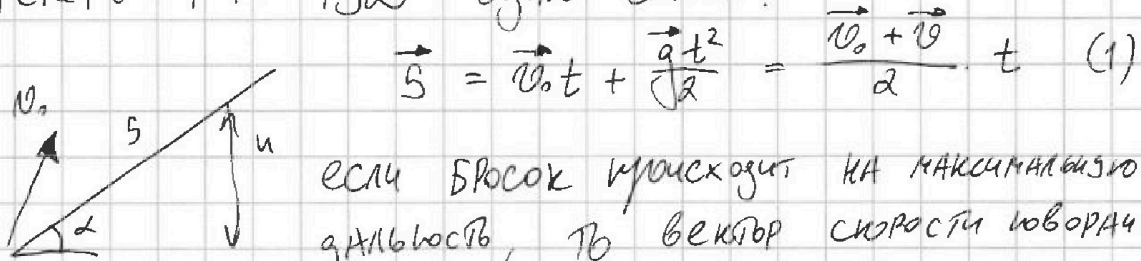 S⃗ = v⃗₀t + g⃗t²/2 = (v⃗₀ + v⃗)/2 · t (1)
v₀ S α н
если бросок происходит на максимальную
дальность, то вектор скорости поворач